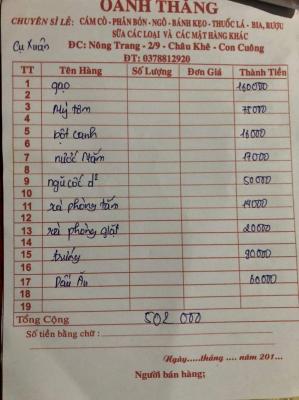 OANH THẮNG
CHUYÊN SỈ LẺ: CÁM CÒ - PHÂN BÓN - NGÔ - BÁNH KẸO - THUỐC LÁ - BIA, RƯỢU
SỮA CÁC LOẠI VÀ CÁC MẶT HÀNG KHÁC
Cụ Xuân
ĐC: Nông Trang - 2/9 - Châu Khê - Con Cuông
ĐT: 0378812920
TT Tên Hàng Số Lượng Đơn Giá Thành Tiền
1 gạo 160000
2
3 Mỳ tôm 75000
4
5 bột canh 16000
6
7 nước Mắm 17000
8
9 ngũ cốc d² 50000
10
11 xà phòng tắm 14000
12
13 xà phòng giặt 20000
14
15 trứng 90000
16
17 Dầu Ăn 60000
18
19
Tổng Cộng 502 000
Số tiền bằng chữ:
Ngày.....tháng .... năm 201...
Người bán hàng;